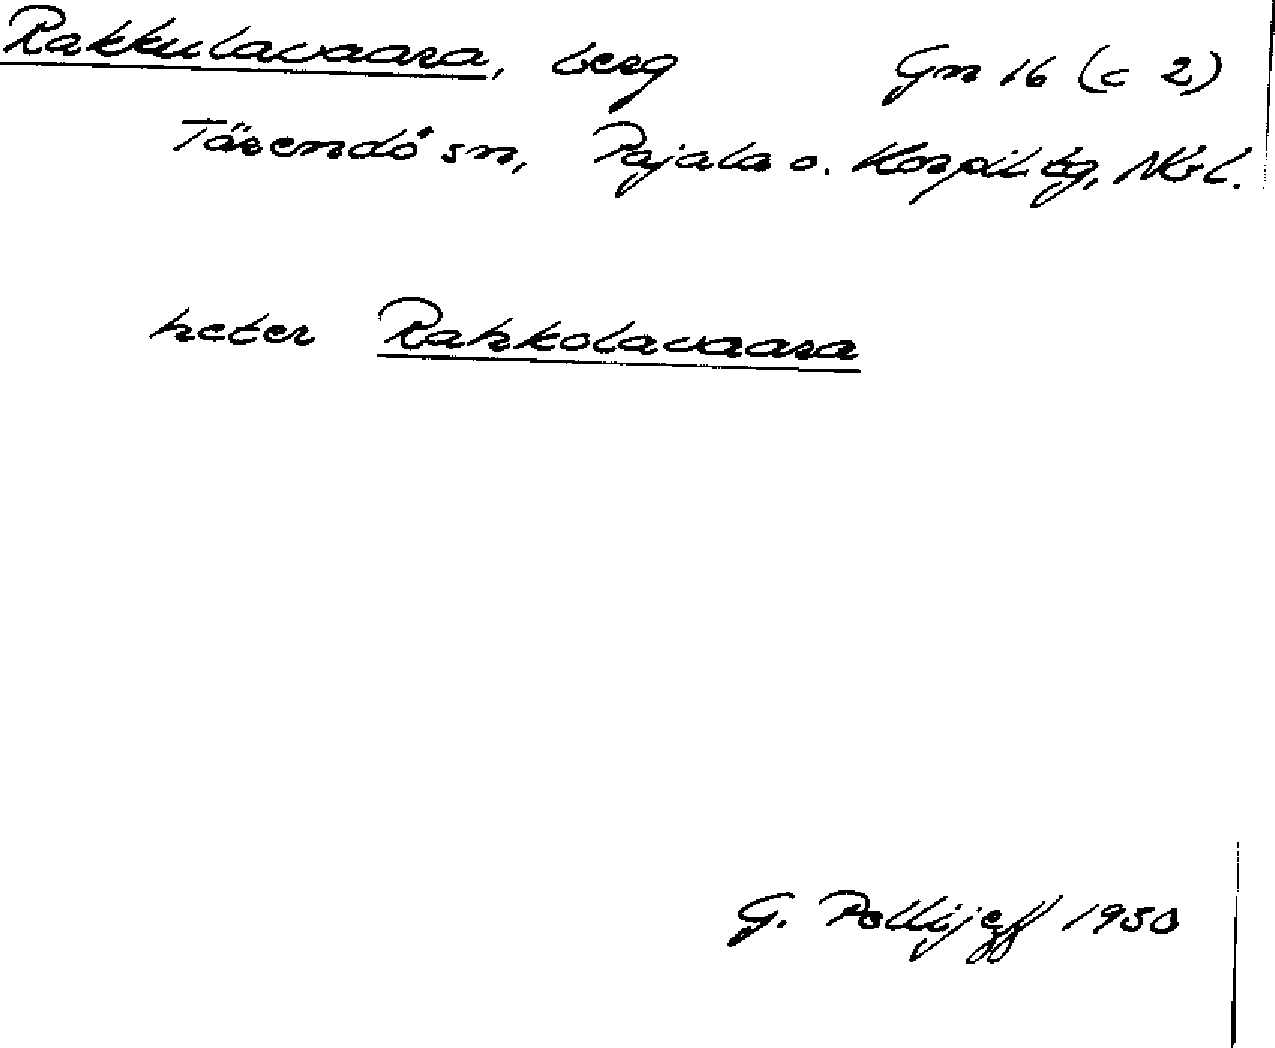 Rakkulavaara, berg Gm 16 (c 2)
Tärendö sn, Pajala o. Korpil. tg, Nbl.
heter Rahkolavaara
G. Pellijeff 1950